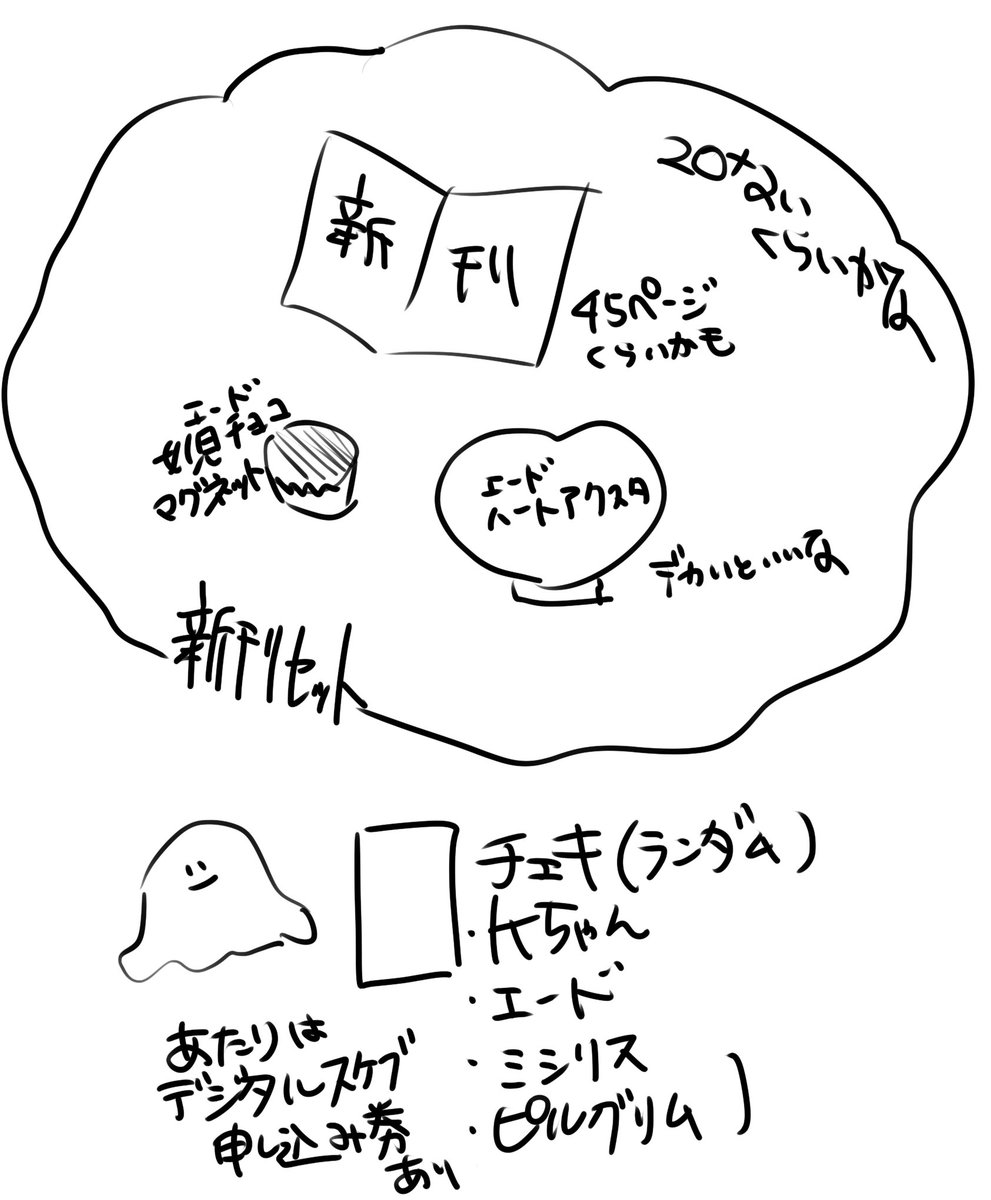 20ない
くらいかな
新刊
45ページ
くらいかも
エード
チョコ
マグネット
エード
ハートアクスタ
デカいといいな
新刊セット
チェキ(ランダム)
・ちゃん
・エード
・ミシリス
・ピルグリム
あたりは
デジタルスケブ
申し込み券
あり